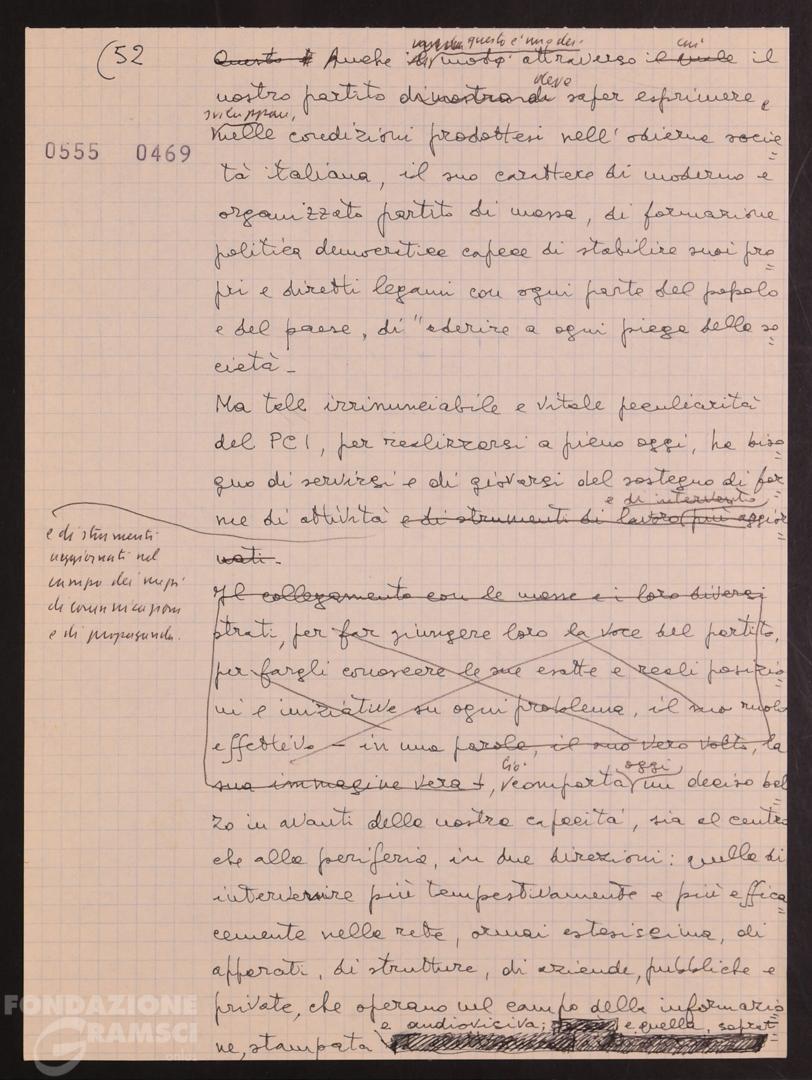 (52
0555 0469
questo è uno dei cui
Questo è Anche modo attraverso il quale il
deve
nostro partito dimostra di saper esprimere e
sviluppare,
nelle condizioni prodottesi nell'odierna socie=
tà italiana, il suo carattere di moderno e
organizzato partito di massa, di formazione
politica democratica capace di stabilire suoi pro=
pri e diretti legami con ogni parte del popolo
e del paese, di "aderire a ogni piega della so=
cietà -
Ma tale irrinunciabile e vitale peculiarità
del PCI, per realizzarsi a pieno oggi, ha biso=
gno di servirsi e di giovarsi del sostegno di for=
e di intervento
me di attività e di strumenti di lavoro (più aggior
nati.
e di strumenti
aggiornati nel
campo dei mezzi
di comunicazione
e di propaganda.
Il collegamento con le masse e i loro diversi
strati, per far giungere loro la voce del partito,
per fargli conoscere le sue esatte e reali posizio=
ni e iniziative su ogni problema, il suo ruolo
effettivo - in una parola, il suo vero volto, la
Ciò oggi
sua immagine vera, comporta un deciso bal=
zo in avanti della nostra capacità, sia al centro
che alla periferia, in due direzioni: quella di
intervenire più tempestivamente e più effica=
cemente nella rete, ormai estesissima, di
apparati, di strutture, di aziende, pubbliche e
private, che operano nel campo della informazio=
e audiovisiva; e quella, soprat=
ne, stampata
FONDAZIONE
GRAMSCI
onlus